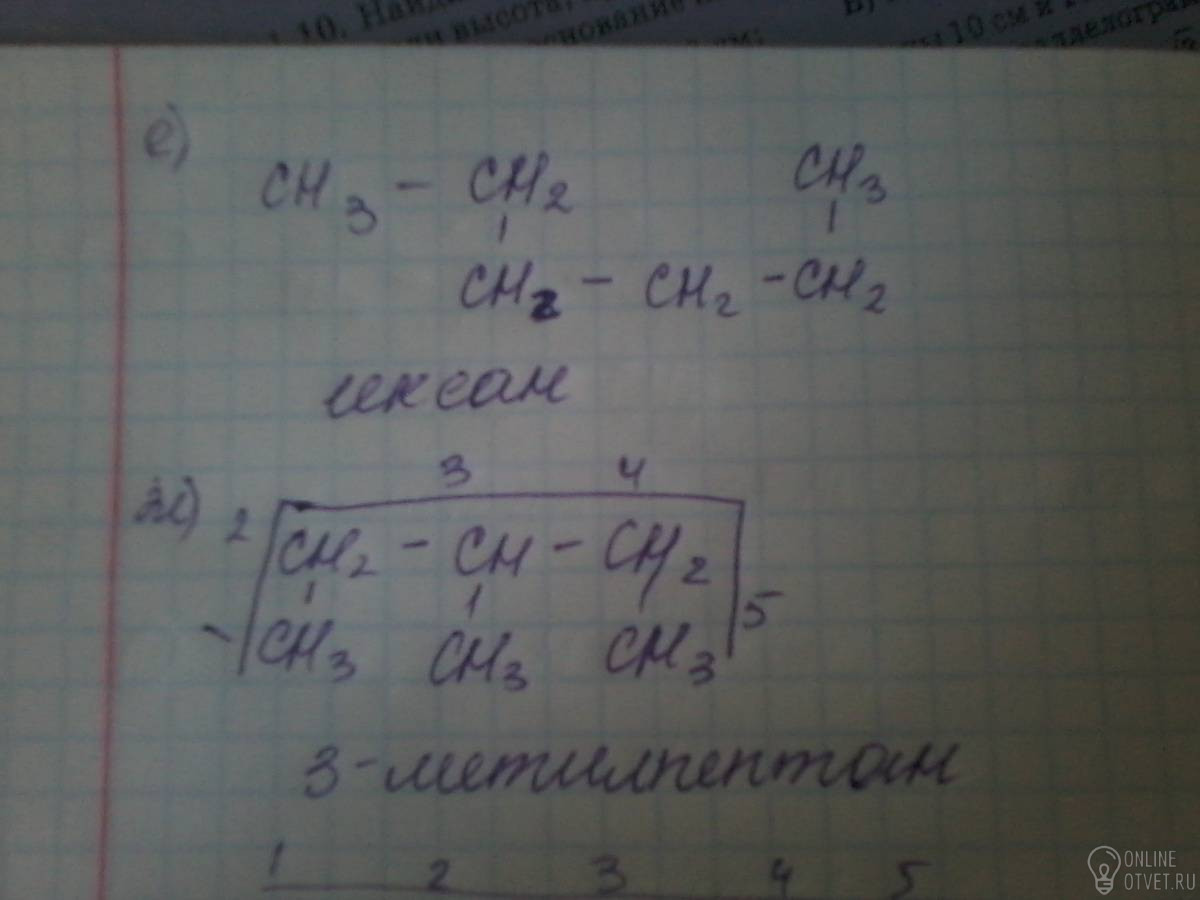 1.10. Найд
высота,
основание
ы 10 см и
ллелограм
е)
CH3 – CH2 CH3
CH2 – CH2 – CH2
гексан
3 4
ж) 2 CH2 – CH – CH2
CH3 CH3 CH3 5
3-метилпентан
1 2 3 4 5
ONLINE
OTVET.RU